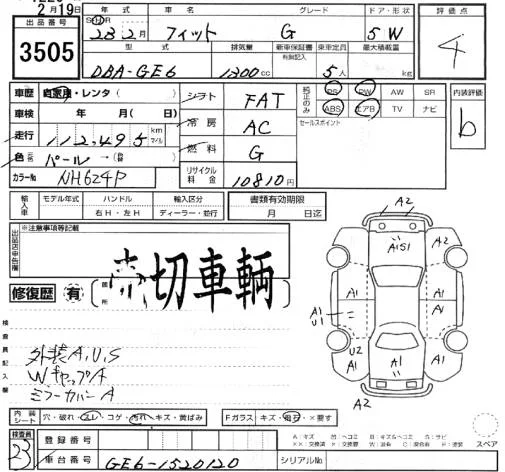 2月19日
出品番号
3505
年式 車名 グレード ドア・形状
23年2月 フィット G 5W
型式 排気量 新車保証書 乗車定員 最大積載量
有無記入
DBA-GE6 1300cc 5人 kg
評価点
4
車歴 自家用・レンタ( )
車検 年 月( 日)
走行 112,495 km マイル
色 パール→
カラーNo NH624P
シフト FAT
冷房 AC
燃料 G
リサイクル料金 10810円
純正のみ PS PW AW SR
ABS エアB TV ナビ
セールスポイント
内装評価
b
輸入車 モデル年式 ハンドル 輸入区分
右H・左H ディーラー・並行
書類有効期限
月 日迄
出品店申告欄
※注意事項等記載
売切車両
修復歴 有
箇所
検査員記入欄
外装A,U,S
WキャップA
ミラーカバーA
内装シート 穴・破れ・スレ・コゲ・汚れ・キズ・黄ばみ
Fガラス キズ・飛石・×要す
検査員
23
登録番号
車台番号 GE6-1520120
シリアルNo
A2
A1S1 A2
A1 A1
A1 U1 A1 A1
U2 A1 A2
A2
スペア